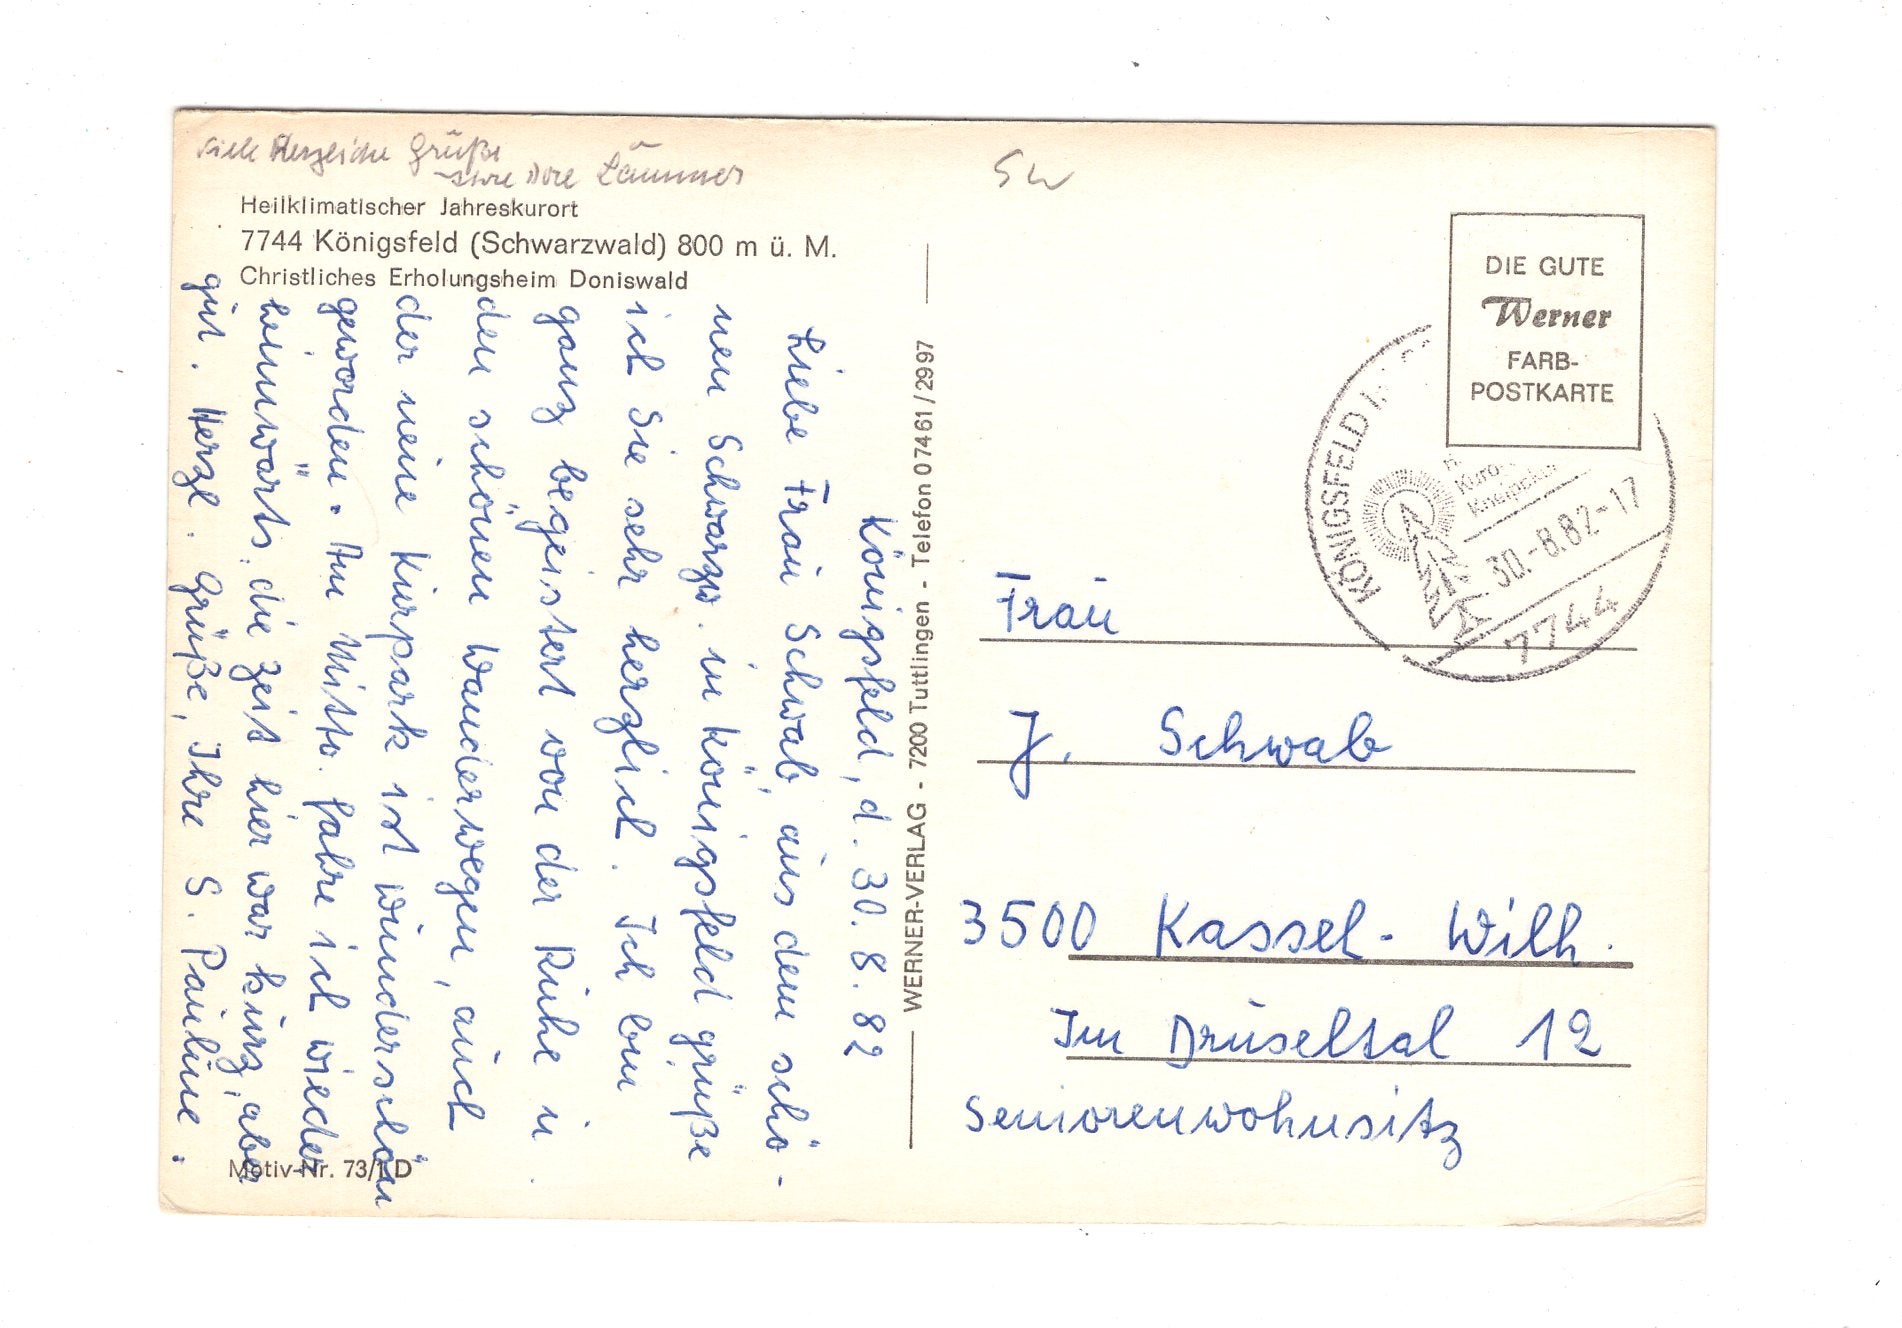 Viele Herzliche Grüße
Ihre Dore Lämmer
Sw
Heilklimatischer Jahreskurort
7744 Königsfeld (Schwarzwald) 800 m ü. M.
Christliches Erholungsheim Doniswald
Königsfeld, d. 30. 8. 82
Liebe Frau Schwab, aus dem schö-
nen Schwarzw. in Königsfeld grüße
ich Sie sehr herzlich. Ich bin
ganz begeistert von der Ruhe u.
den schönen Wanderwegen, auch
der neue Kurpark ist wunderschön
geworden. Am Mittw. fahre ich wieder
heimwärts, die Zeit hier war kurz, aber
gut. Herzl. Grüße, Ihre S. Pauline.
Motiv-Nr. 73/1 D
WERNER-VERLAG - 7200 Tuttlingen - Telefon 07461/2997
DIE GUTE
Werner
FARB-
POSTKARTE
KÖNIGSFELD I.
30.-8.82-17
7744
Frau
J. Schwab
3500 Kassel- Wilh.
Im Druseltal 12
Seniorenwohnsitz